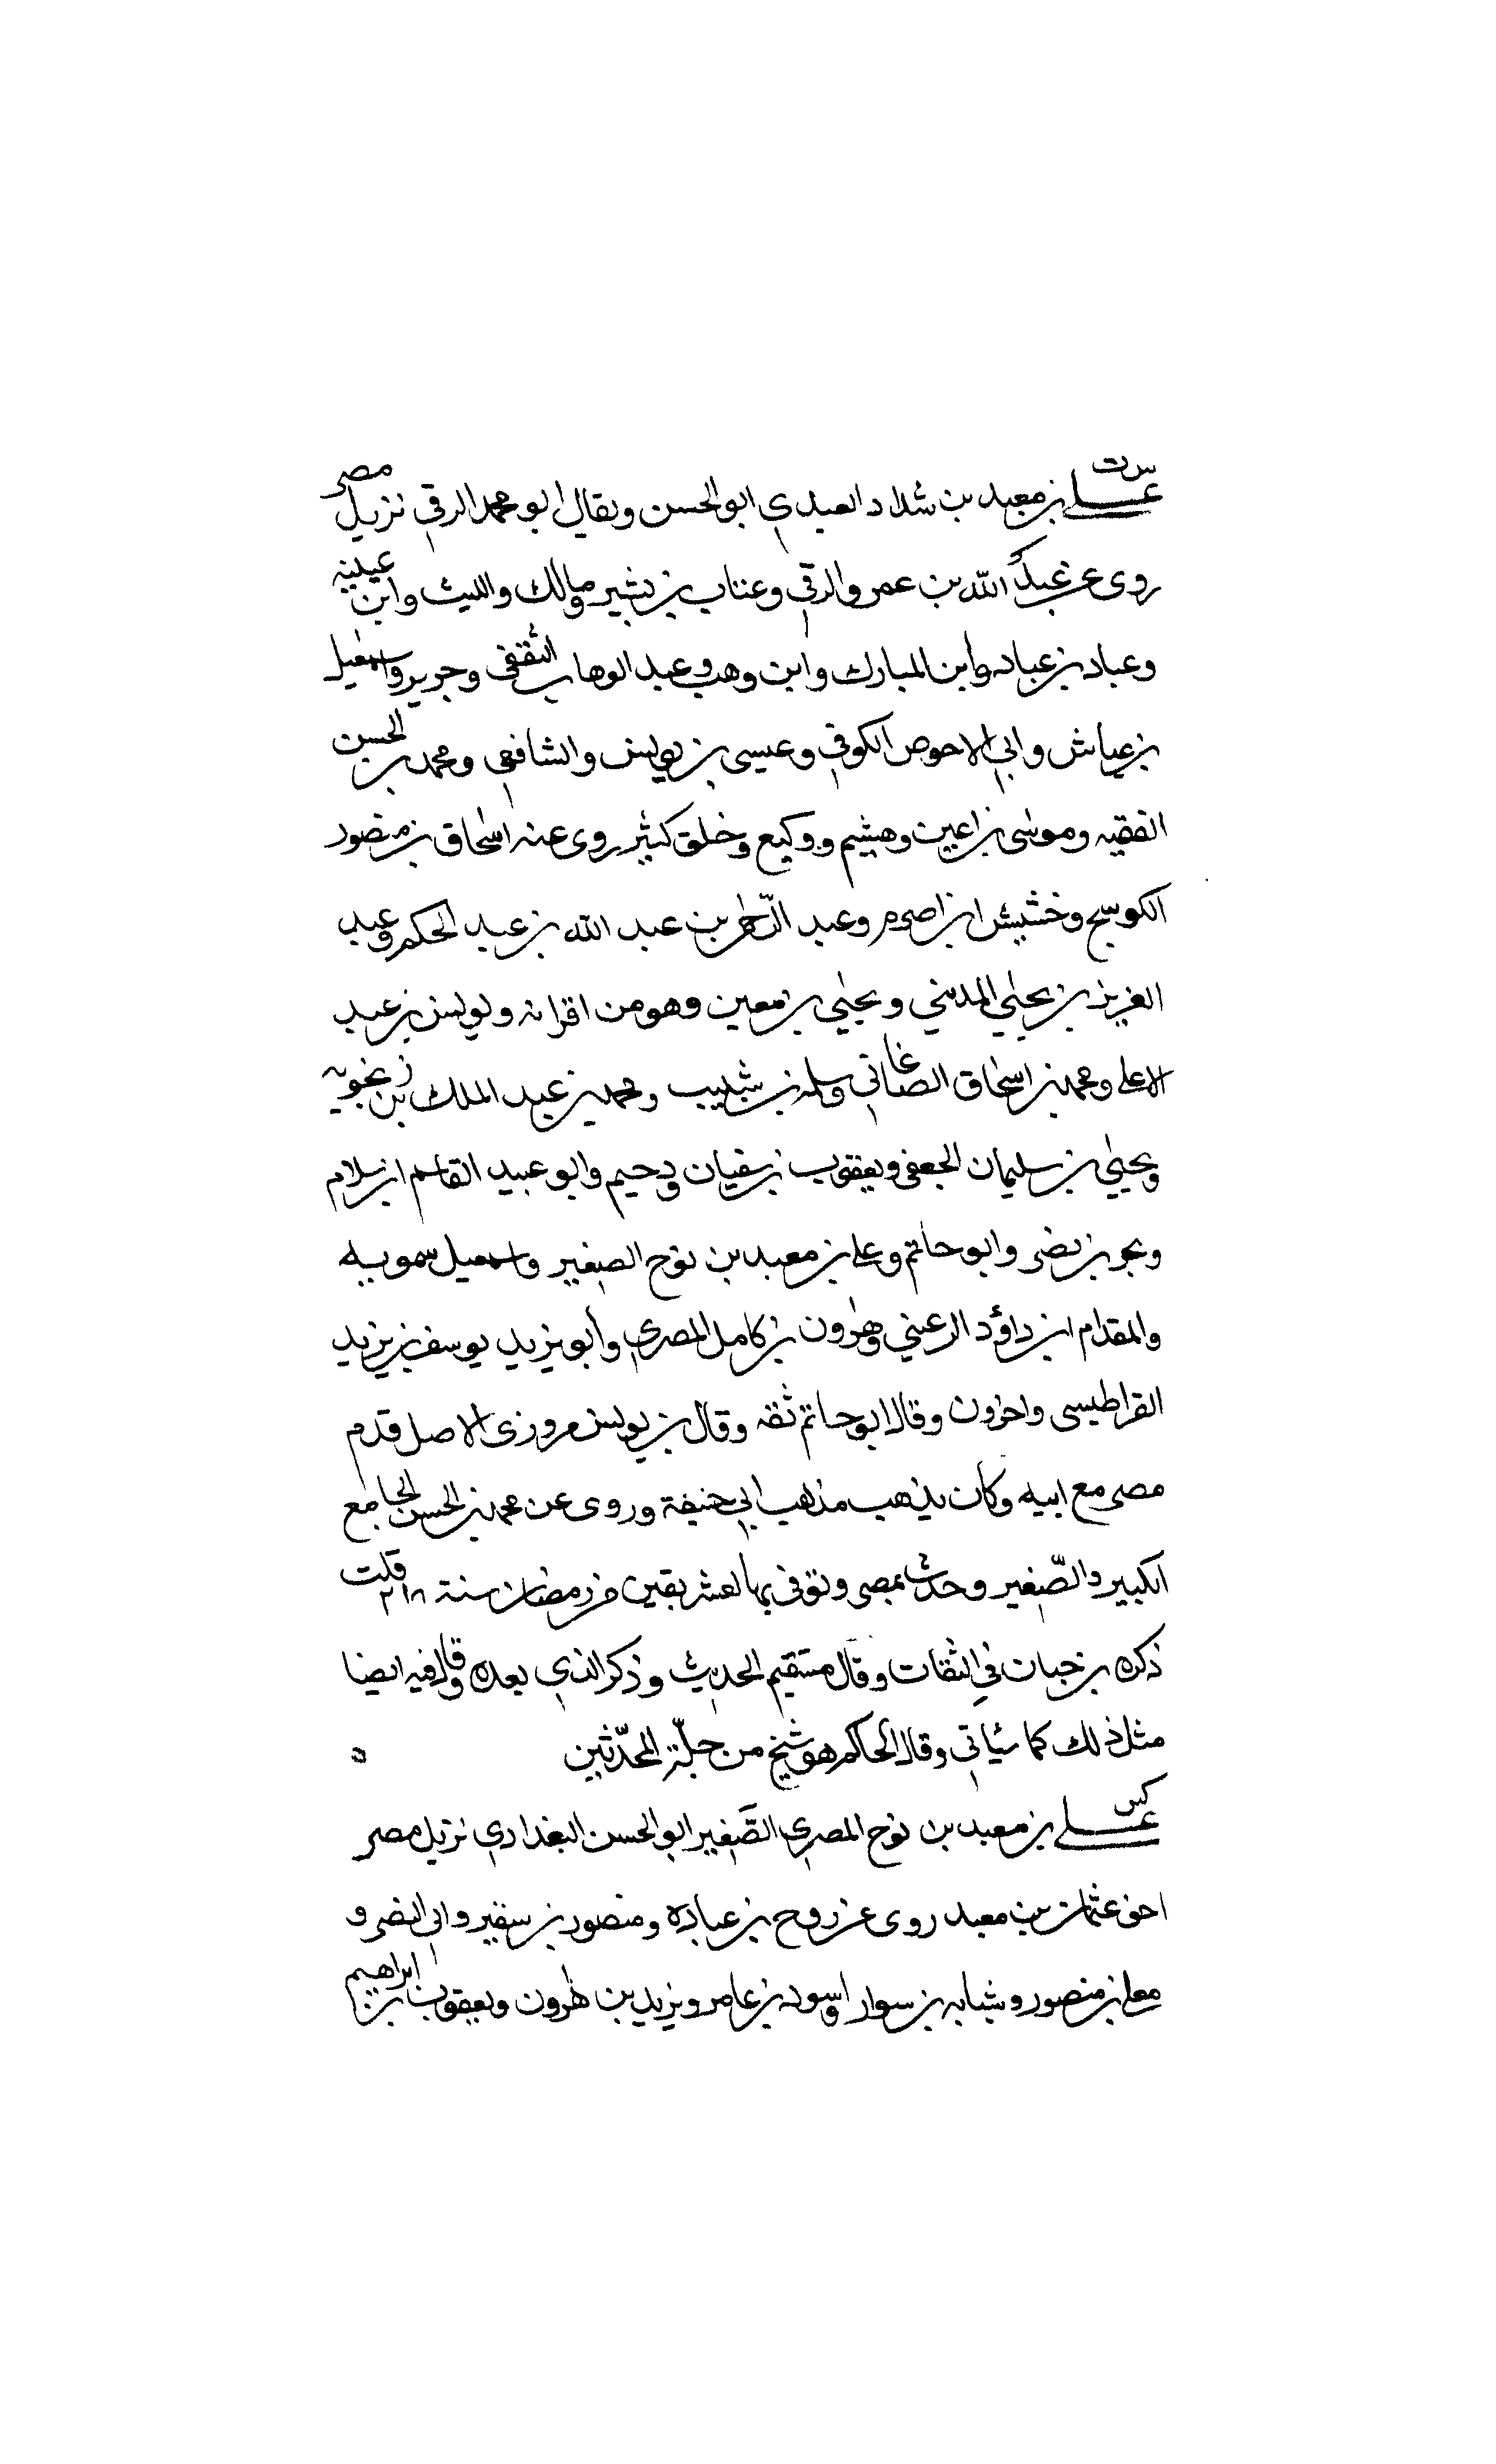 س ت
علي بن معبد بن شداد العبدي ابو الحسن ويقال ابو محمد الرقي نزيل مصر
روى عن عبيد الله بن عمرو الرقي وعتاب بن بشير ومالك والليث وابن عيينه
وعباد بن عباد وابن المبارك وابن وهب وعبد الوهاب الثقفي وجرير واسمعيل
بن عياش وابي الاحوص الكوفي وعيسى بن يونس والشافعي ومحمد بن الحسن
الفقيه وموسى بن اعين وهشيم ووكيع وخلق كثير روى عنه اسحاق بن منصور
الكوسج وخشيش ابن اصرم وعبد الرحمن بن عبد الله بن عبد الحكم وعبد
العزيز بن يحيى المدني ويحيى بن معين وهو من اقرانه ويونس بن عبد
الاعلى ومحمد بن اسحاق الصاغاني وسلمه بن شبيب ومحمد بن عبد الملك بن زنجويه
ويحيى بن سليمان الجعفي ويعقوب بن سفيان ودحيم وابو عبيد القاسم ابن سلام
وبحر بن نصر وابو حاتم وعلي بن معبد بن نوح الصغير واسمعيل سمويه
والمقدام ابن داؤد الرعيني وهرون بن كامل المصري وأبو يزيد يوسف بن يزيد
القراطيسي واخرون وقال ابو حاتم ثقه وقال بن يونس مروزي الاصل قدم
مصر مع ابيه وكان يذهب مذهب ابي حنيفة وروى عن محمد بن الحسن الجامع
الكبير والصّغير وحدث بمصر وتوفي بها لعشر بقين من رمضان سنة ٢١٨ قلت
ذكره بن حبان في الثقات وقال مستقيم الحديث وذكر الذي بعده وقال فيه ايضا
مثل ذلك كما سيأتي وقال الحاكم هو شيخ من جلّة المحدّثين ه
كن
علي بن معبد بن نوح المصري الصّغير ابو الحسن البغدادي نزيل مصر
اخو عثمان بن معبد روى عن روح بن عباده ومنصور بن سقير وابي النضر و
معلى بن منصور وشبابه بن سوار واسود بن عامر ويزيد بن هرون ويعقوب بن ابراهيم